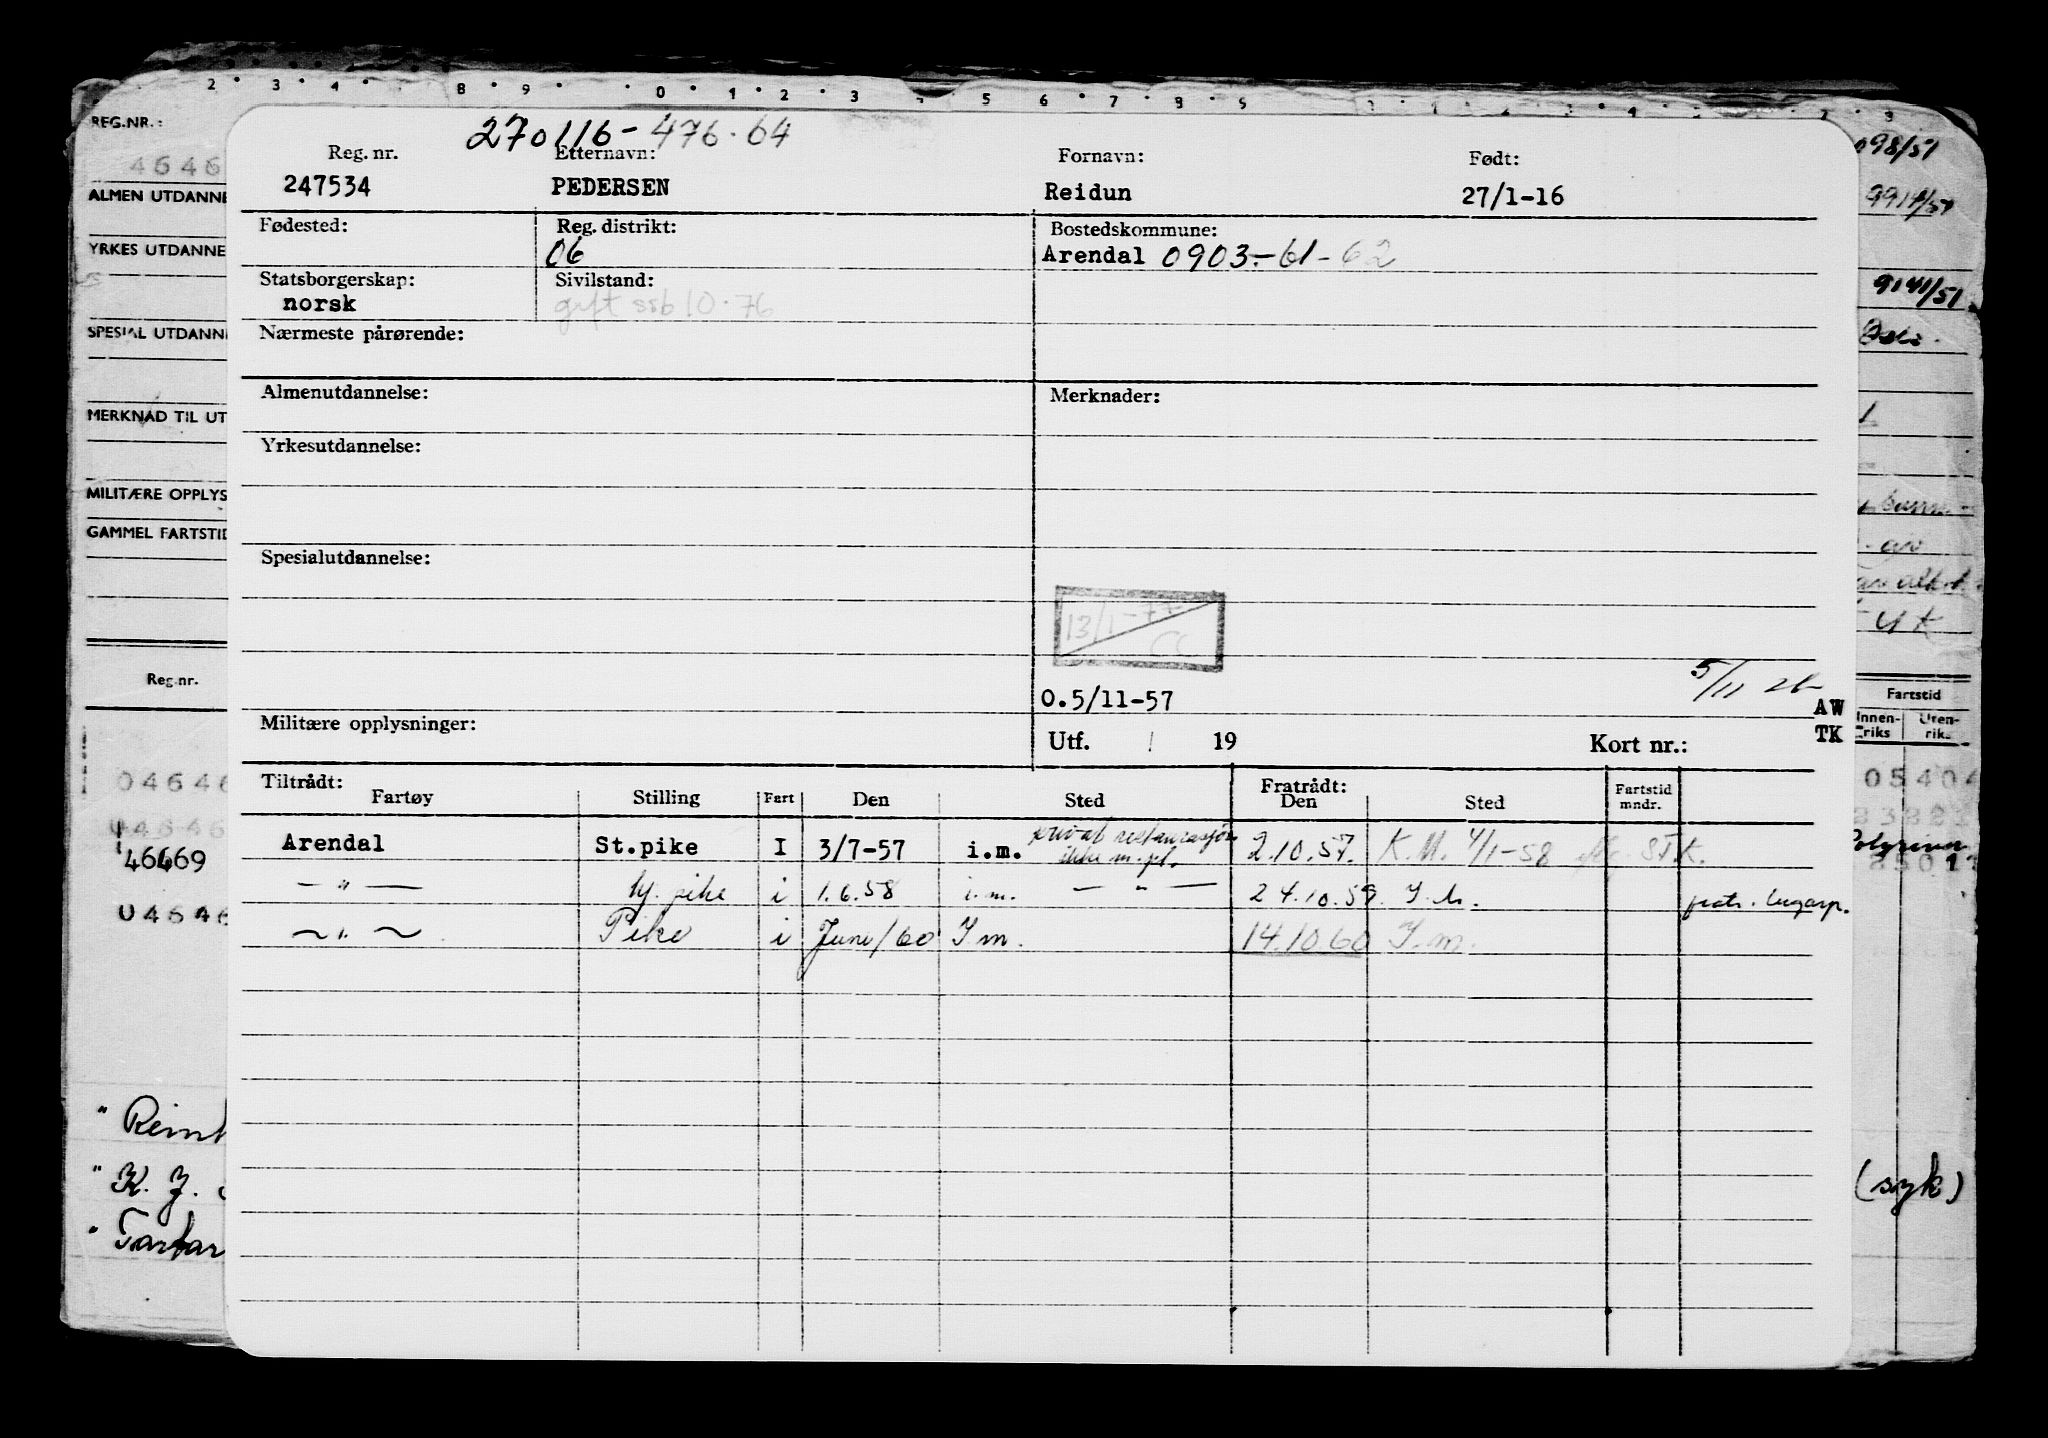 2 3 4 8 9 0 1 2 3 5 6 7 8 9
REG.NR.:
4646
ALMEN UTDANNE
YRKES UTDANNE
SPESIAL UTDANN
MERKNAD TIL UT
MILITÆRE OPPLYS
GAMMEL FARTSTID
Reg.nr.
04646
46469
04646
" Reint
" K. J.
" Tartar
270116-476.64
Reg. nr. Etternavn: Fornavn: Født:
247534 PEDERSEN Reidun 27/1-16
Fødested: Reg. distrikt: Bostedskommune:
06 Arendal 0903.-61-62
Statsborgerskap: Sivilstand:
norsk gift ssb 10.76
Nærmeste pårørende:
Almenutdannelse: Merknader:
Yrkesutdannelse:
Spesialutdannelse:
13/1-77
CC
5/11
O.5/11-57
AW
Militære opplysninger: Utf. / 19 Kort nr.: TK
Tiltrådt: Fratrådt:
Fartøy Stilling Fart Den Sted Den Sted Fartstid mndr.
privat restaurasjon
Arendal St.pike I 3/7-57 i.m. ikke m.pl. 2.10.57. K.M. 4/1-58 STK.
— " — pike i 1.6.58 i.m. — " — 24.10.59. I.m. fratr.
~ " ~ Pike i Juni/60 I m. 14.10.60 I.m.
098/51
9914/51
9141/51
Oslo.
4 K
Fartstid
Innen-riks Uten-riks
05404
(syk)